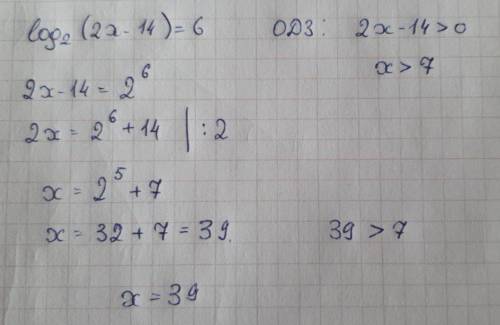 log₂(2x-14)=6 ОДЗ: 2x-14>0
x>7
2x-14=2⁶
2x=2⁶+14 | :2
x=2⁵+7
x=32+7=39. 39>7
x=39